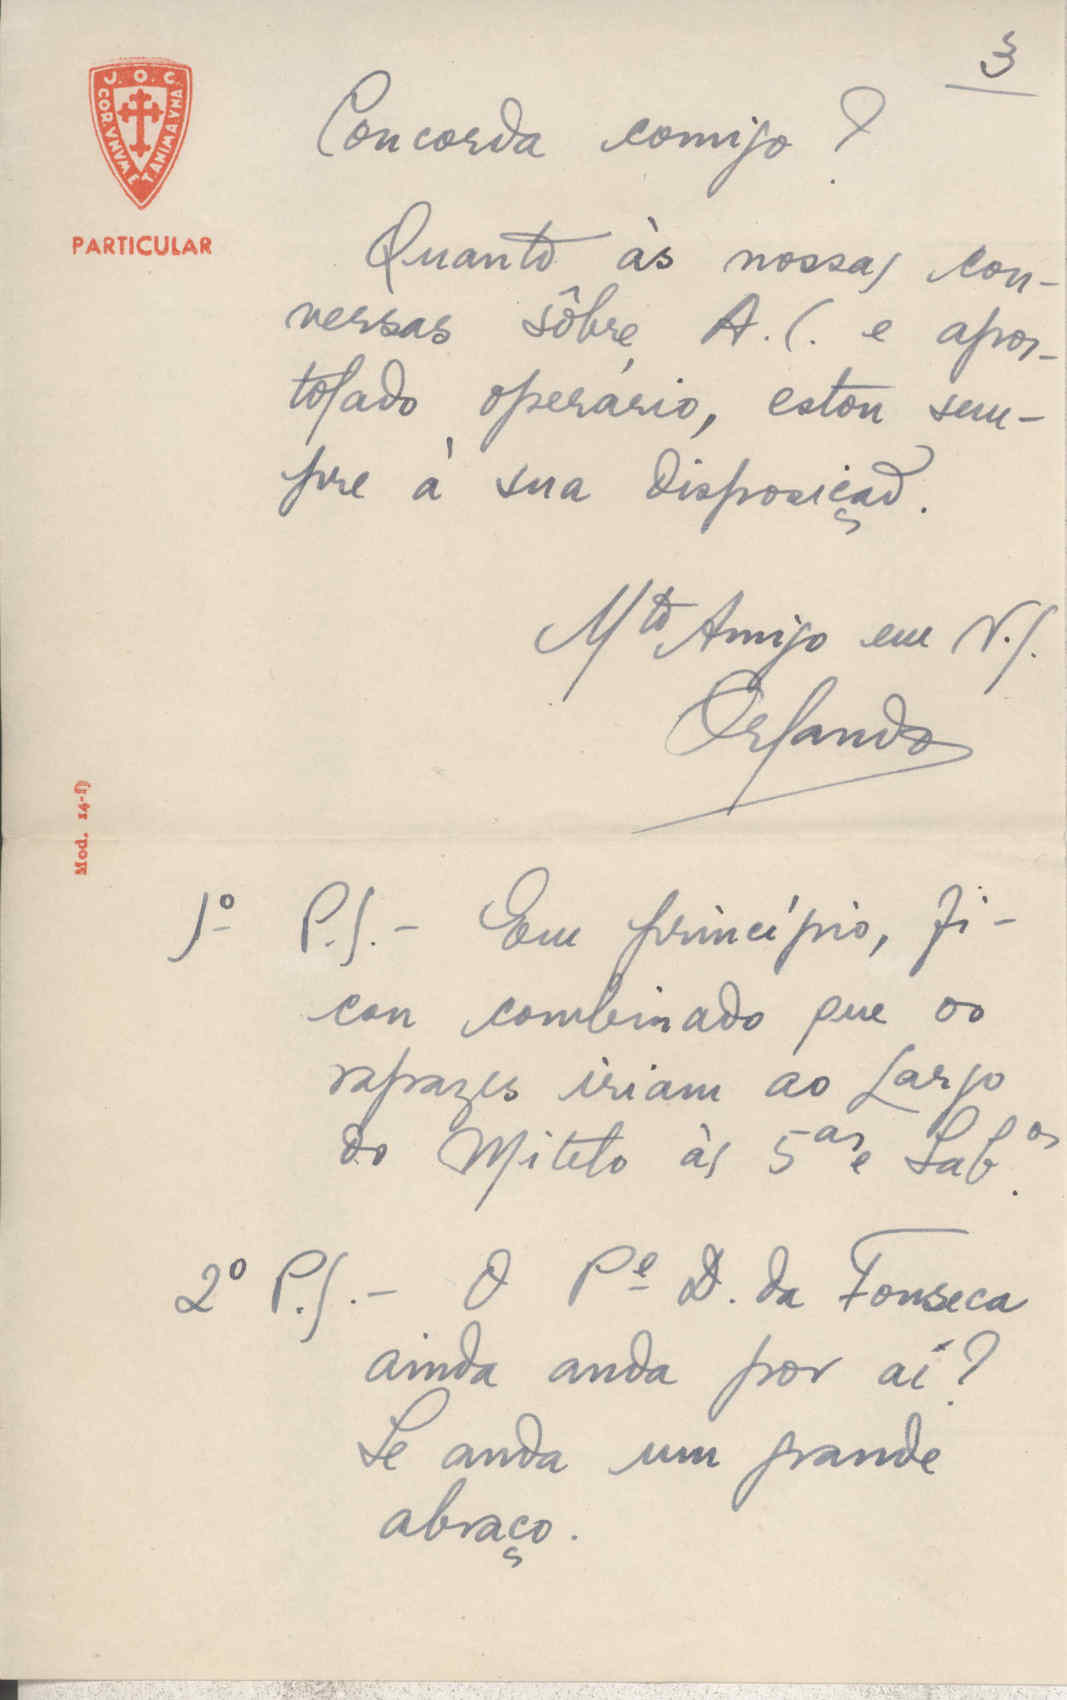 3
J. O. C.
COR VNVM ET ANIMA VNA
PARTICULAR
Concorda comigo?
Quanto às nossas con-
versas sôbre A.C. e apos-
tolado operário, estou sem-
pre à sua disposição.
Mto Amigo em N.S.
Orlando
Mod. 14-f)
1º P.S. - Em princípio, fi-
cou combinado que os
rapazes iriam ao Largo
do Mitelo às 5as e Sab.os
2º P.S. - O Pe D. da Fonseca
ainda anda por aí?
Se anda um grande
abraço.